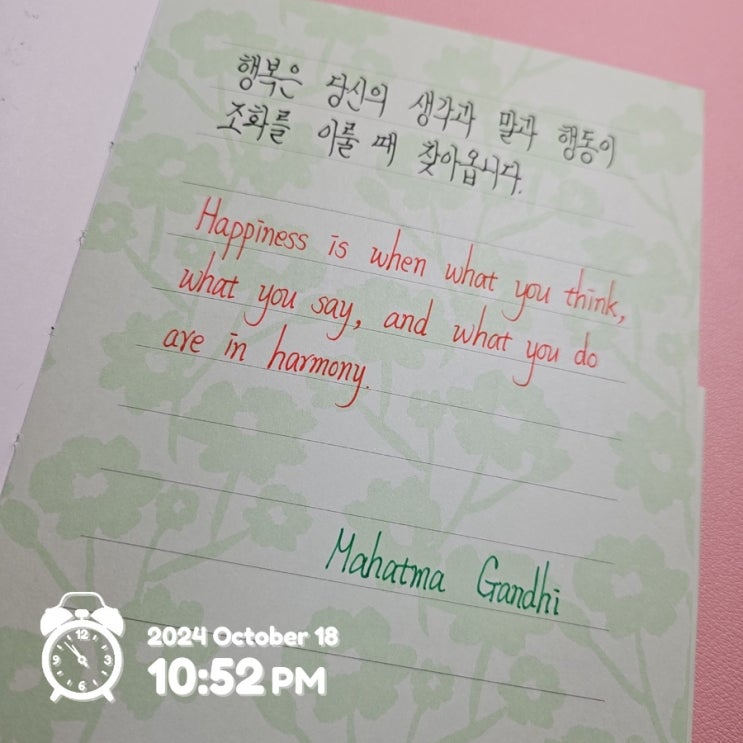 행복은 당신의 생각과 말과 행동이
조화를 이룰 때 찾아옵니다.
Happiness is when what you think,
what you say, and what you do
are in harmony.
Mahatma Gandhi
12
3
6
9
2024 October 18
10:52 PM